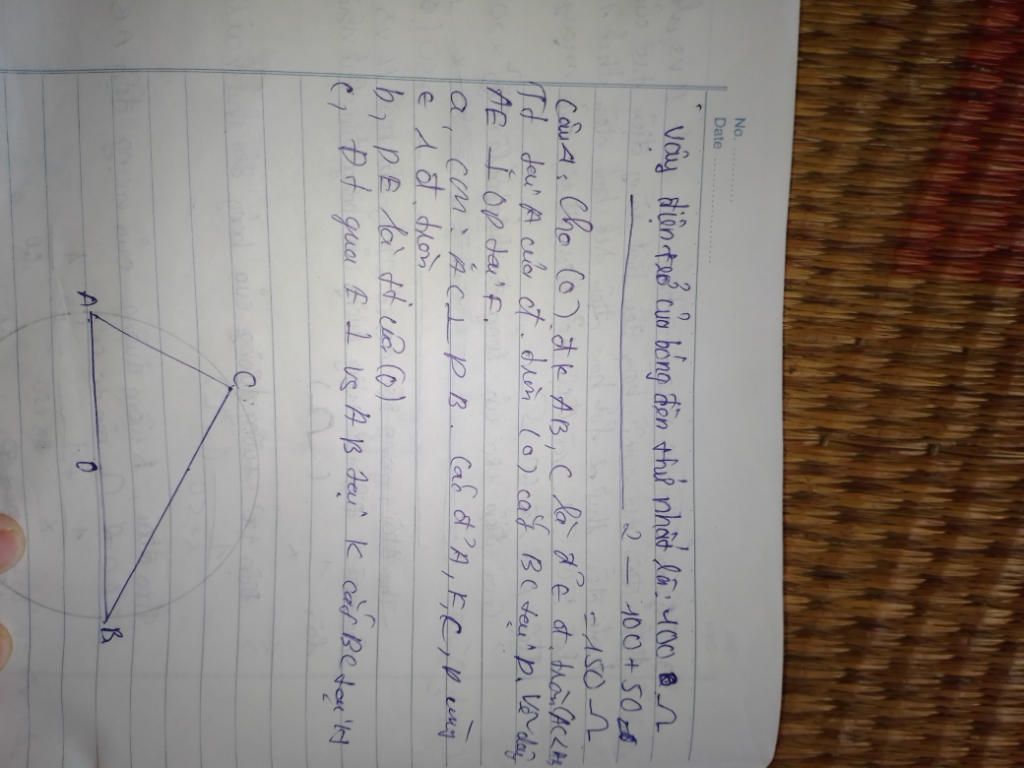 No. ............
Date ............
Vậy điện trở của bóng đèn thứ nhất là: 400 Ω
2 - 100 + 50
= 150 Ω
Câu 4, Cho (O) đk AB, C là đ' ∈ đ. tròn (AC<
Tt tại A của đ. tròn (O) cắt BC tại P. Vẽ dây
AE ⊥ OP tại F.
a, cm: AC ⊥ PB. Các đ' A, F, C, P cùng
∈ 1 đ. tròn
b, PE là tt của (O)
c, Đt qua E ⊥ vs AB tại K cắt BC tại
A
C
O
B